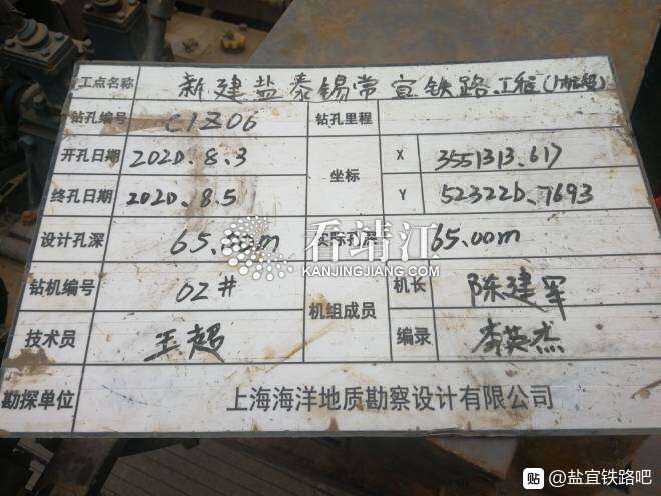 工点名称 新建盐泰锡常宜铁路工程
钻孔编号 C1Z06 钻孔里程
开孔日期 2020.8.3 坐标 X 3551313.617
终孔日期 2020.8.5 Y 523226.7693
设计孔深 65.00m 实际孔深 65.00m
看靖江
KANJINGJIANG.COM
钻机编号 02# 机组成员 机长 陈建军
技术员 王超 编录 李英杰
勘探单位 上海海洋地质勘察设计有限公司
贴 @盐宜铁路吧